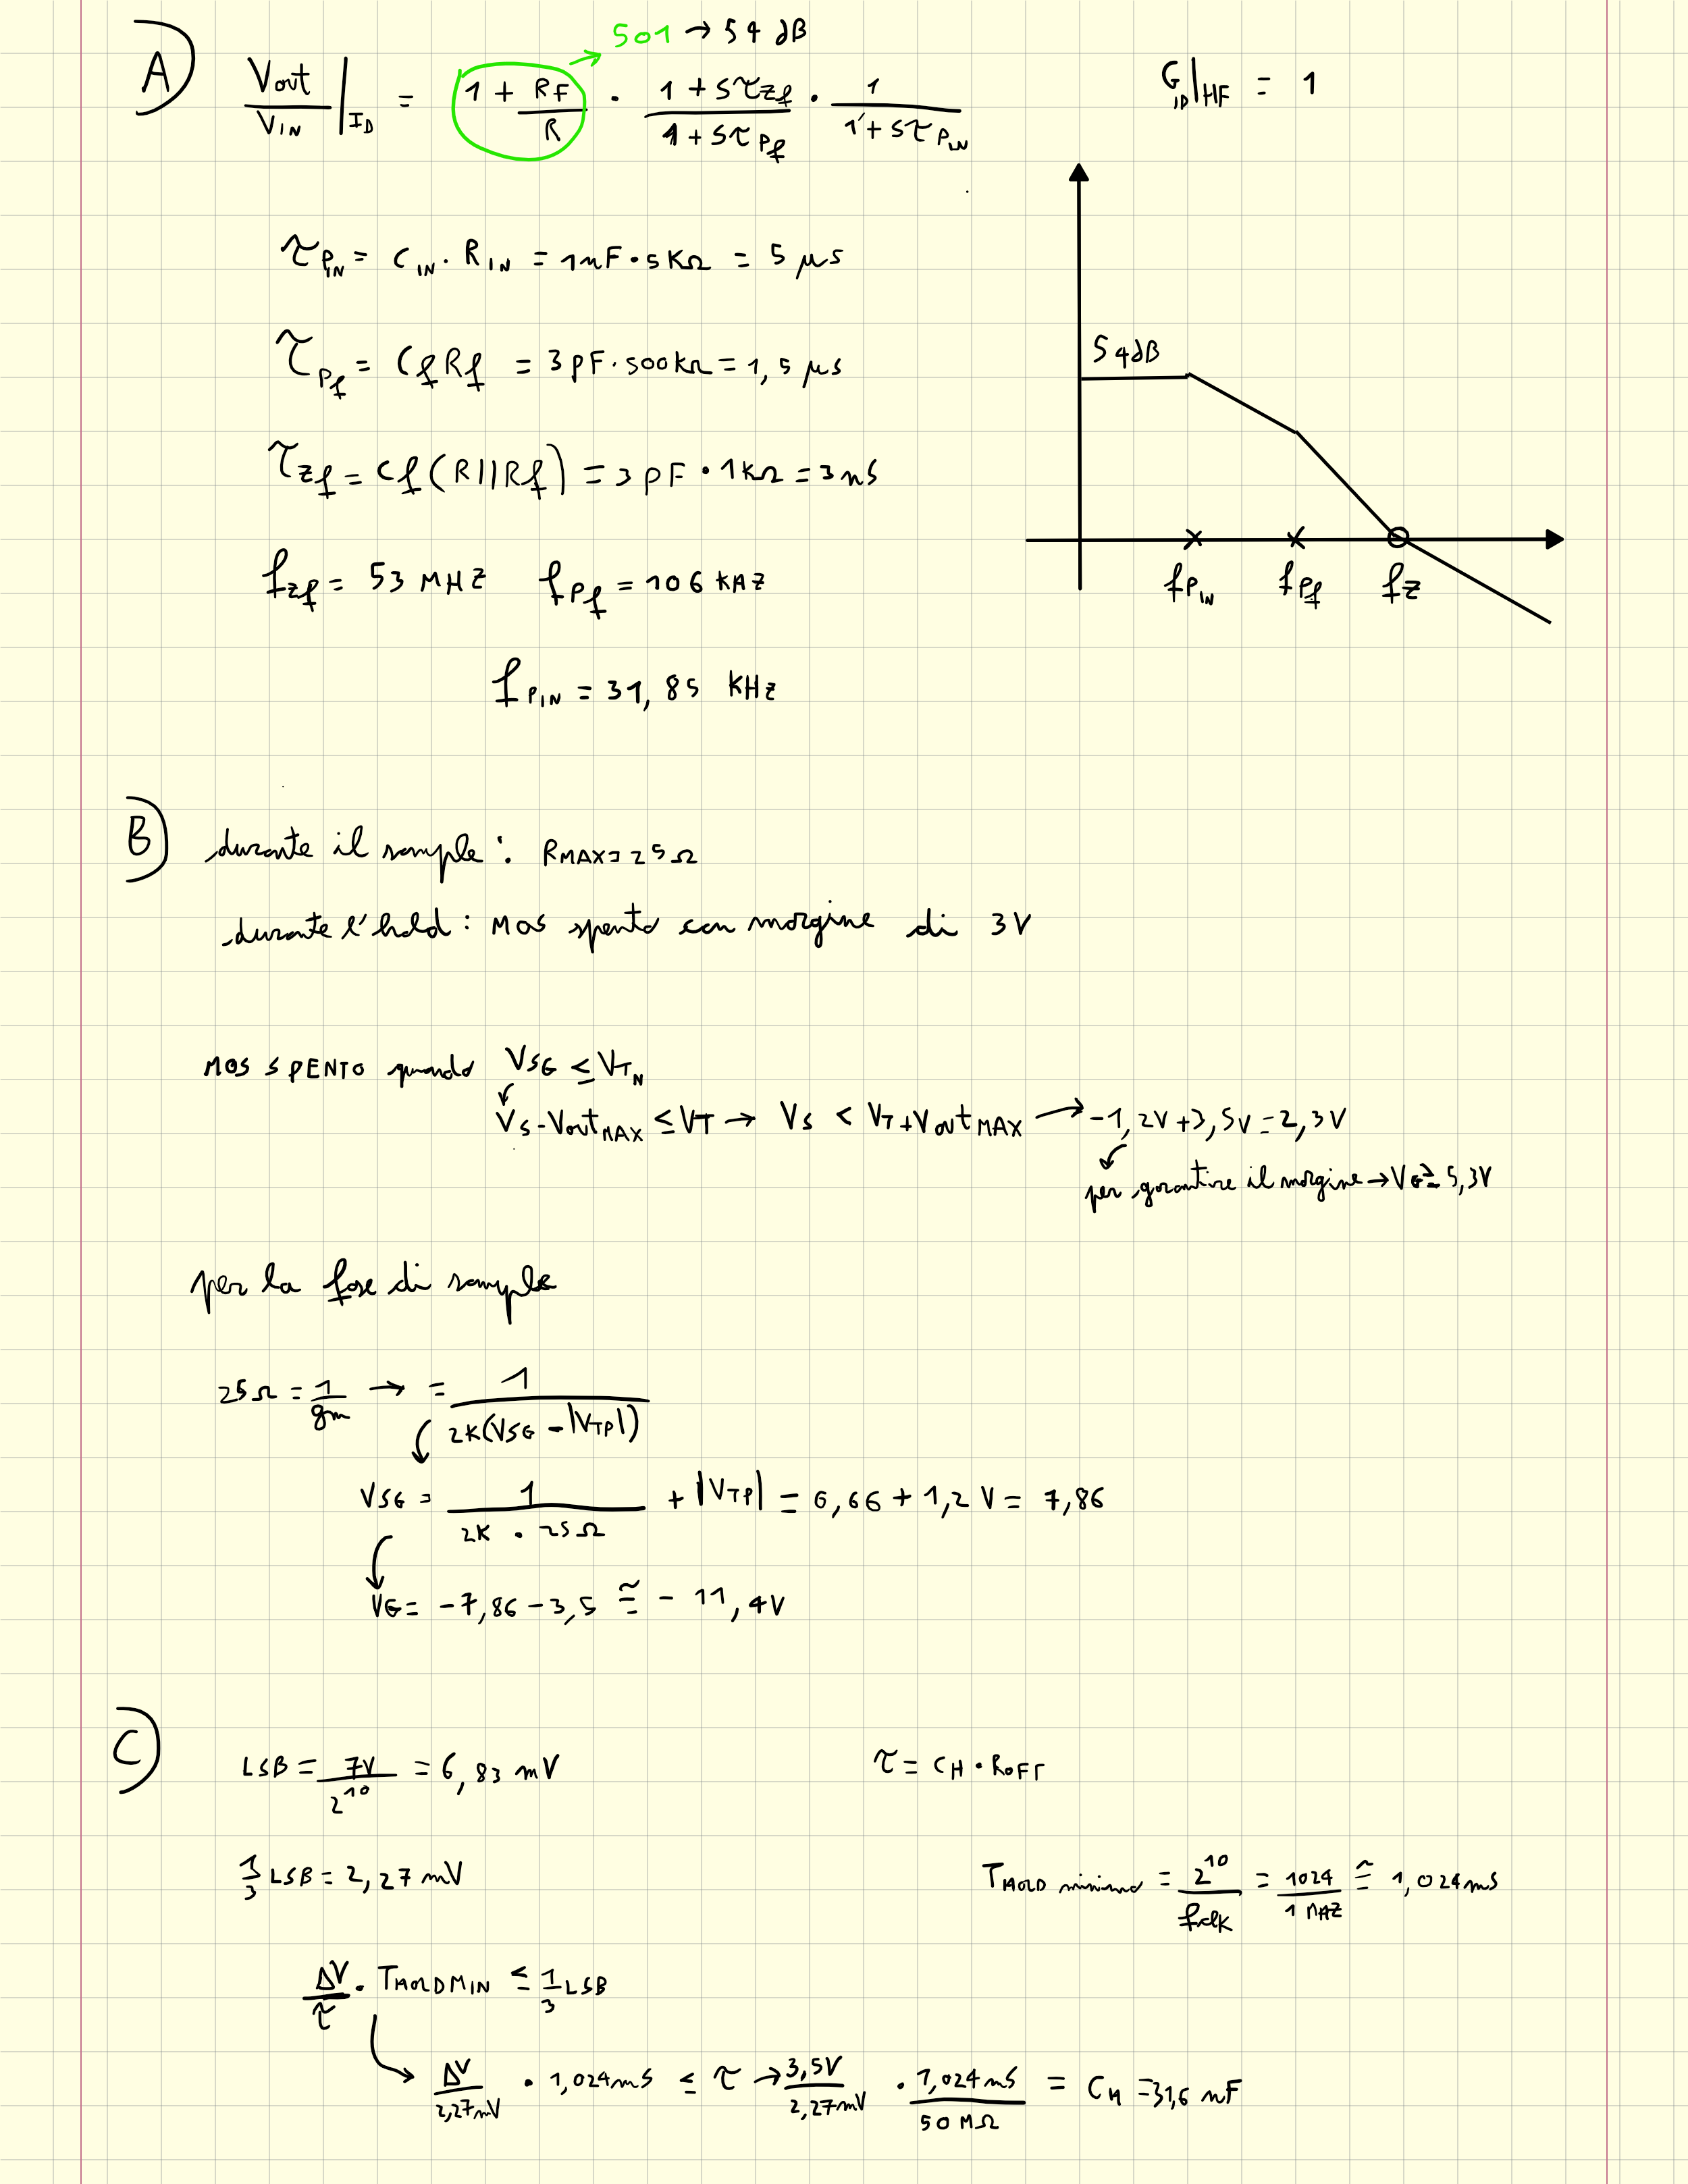 501 → 54 dB
A) Vout/VIN |ID = 1 + RF/R · (1 + sτzf)/(1 + sτPf) · 1/(1 + sτPIN)
GID|HF = 1
τPIN = CIN · RIN = 1nF · 5KΩ = 5 μs
τPf = CfRf = 3 pF · 500kΩ = 1,5 μs
τzf = Cf(R||Rf) = 3 pF · 1kΩ = 3ns
fzf = 53 MHZ fPf = 106 KHZ
fPIN = 31,85 KHz
54dB
fPIN fPf fz
B) durante il sample: RMAX = 25Ω
durante l'hold: MOS spento con margine di 3V
MOS SPENTO quando VSG ≤ VTN
Vs - VoutMAX ≤ VT → Vs < VT + VoutMAX → -1,2V + 3,5V = 2,3V
per garantire il margine → VG ≥ 5,3V
per la fase di sample
25Ω = 1/gm → = 1/(2K(VSG - |VTP|))
VSG = 1/(2K · 25Ω) + |VTP| = 6,66 + 1,2 V = 7,86
VG = -7,86 - 3,5 ≅ - 11,4V
C) LSB = 7V/2^10 = 6,83 mV
τ = CH · ROFF
1/3 LSB = 2,27 mV
THOLD minimo = 2^10/fclk = 1024/1 MHZ ≅ 1,024ms
ΔV/τ · THOLDMIN ≤ 1/3 LSB
ΔV/2,27mV · 1,024ms ≤ τ → 3,5V/2,27mV · 1,024ms/50 MΩ = CH = 31,6 nF